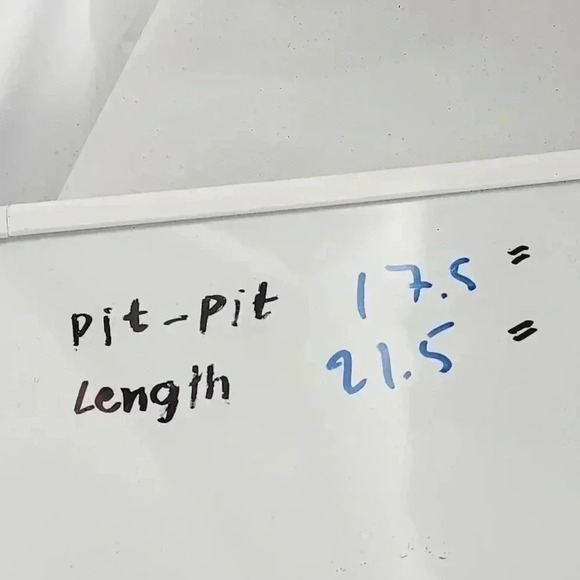 Pit-Pit 17.5 "
Length 21.5 "